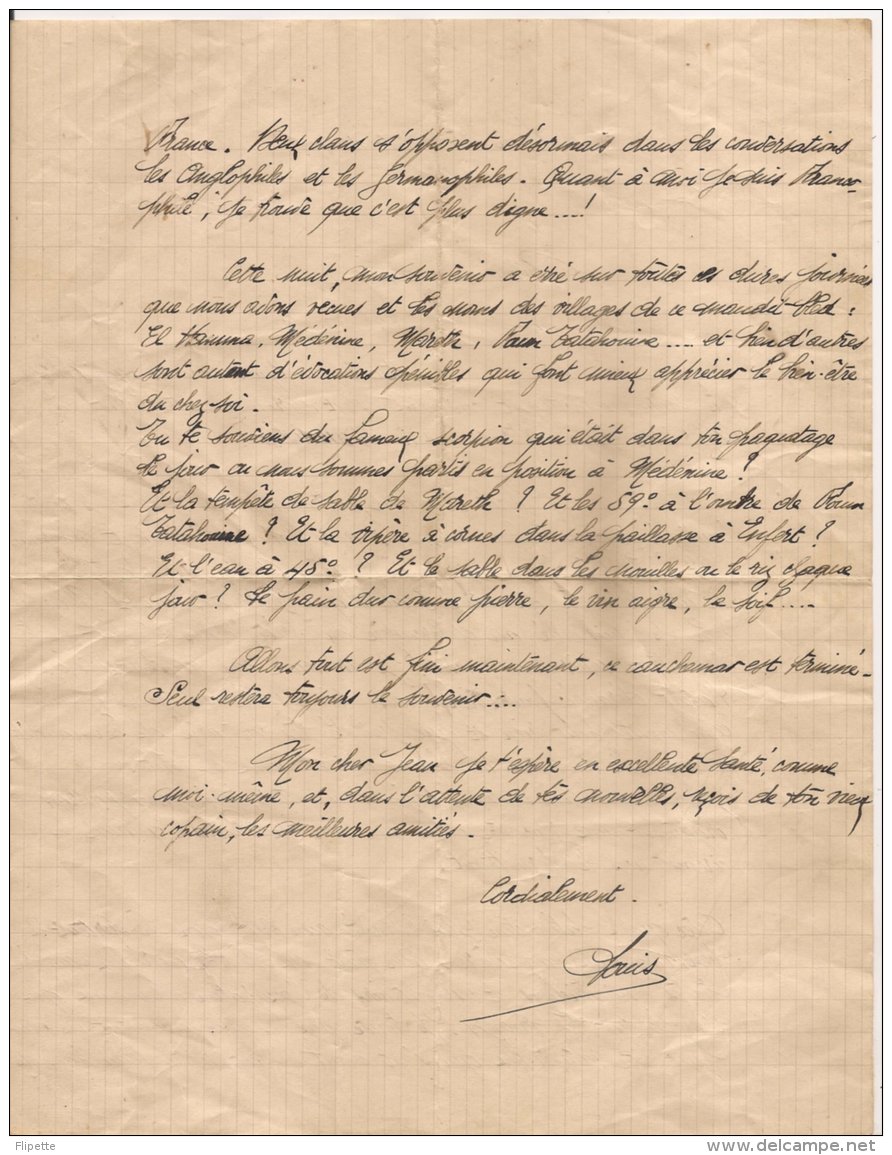 France. Deux clans s'opposent désormais dans les conversations
les Anglophiles et les Germanophiles. Quant à moi je suis Franco-
phile, je trouve que c'est plus digne....!
Cette nuit, mon souvenir a erré sur toutes ces dures journées
que nous avons vécues et les noms des villages de ce maudit bled :
El Hamma, Médénine, Mareth, Foum Tatahouine.... et bien d'autres
sont autant d'évocations pénibles qui font mieux apprécier le bien-être
du chez-soi.
Tu te souviens du fameux scorpion qui était dans ton paquetage
le jour où nous sommes partis en position à Médénine ?
Et la tempête de sable de Mareth ? Et les 59° à l'ombre de Foum
Tatahouine ? Et la vipère à cornes dans la paillasse à Enfert ?
Et l'eau à 45° ? Et le sable dans les nouilles ou le riz chaque
jour ? Le pain dur comme pierre, le vin aigre, la soif....
Allons tout est fini maintenant, ce cauchemar est terminé.
Seul restera toujours le souvenir....
Mon cher Jean je t'espère en excellente santé, comme
moi-même, et, dans l'attente de tes nouvelles, reçois de ton vieux
copain, les meilleures amitiés.
Cordialement.
Louis
Flipette
www.delcampe.net